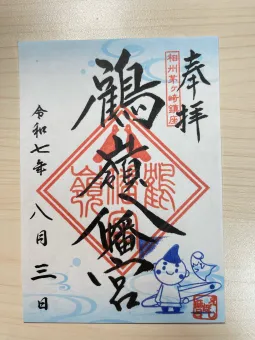 奉拝
相州茅ヶ崎鎮座
鶴嶺八幡宮
令和七年
八月三日